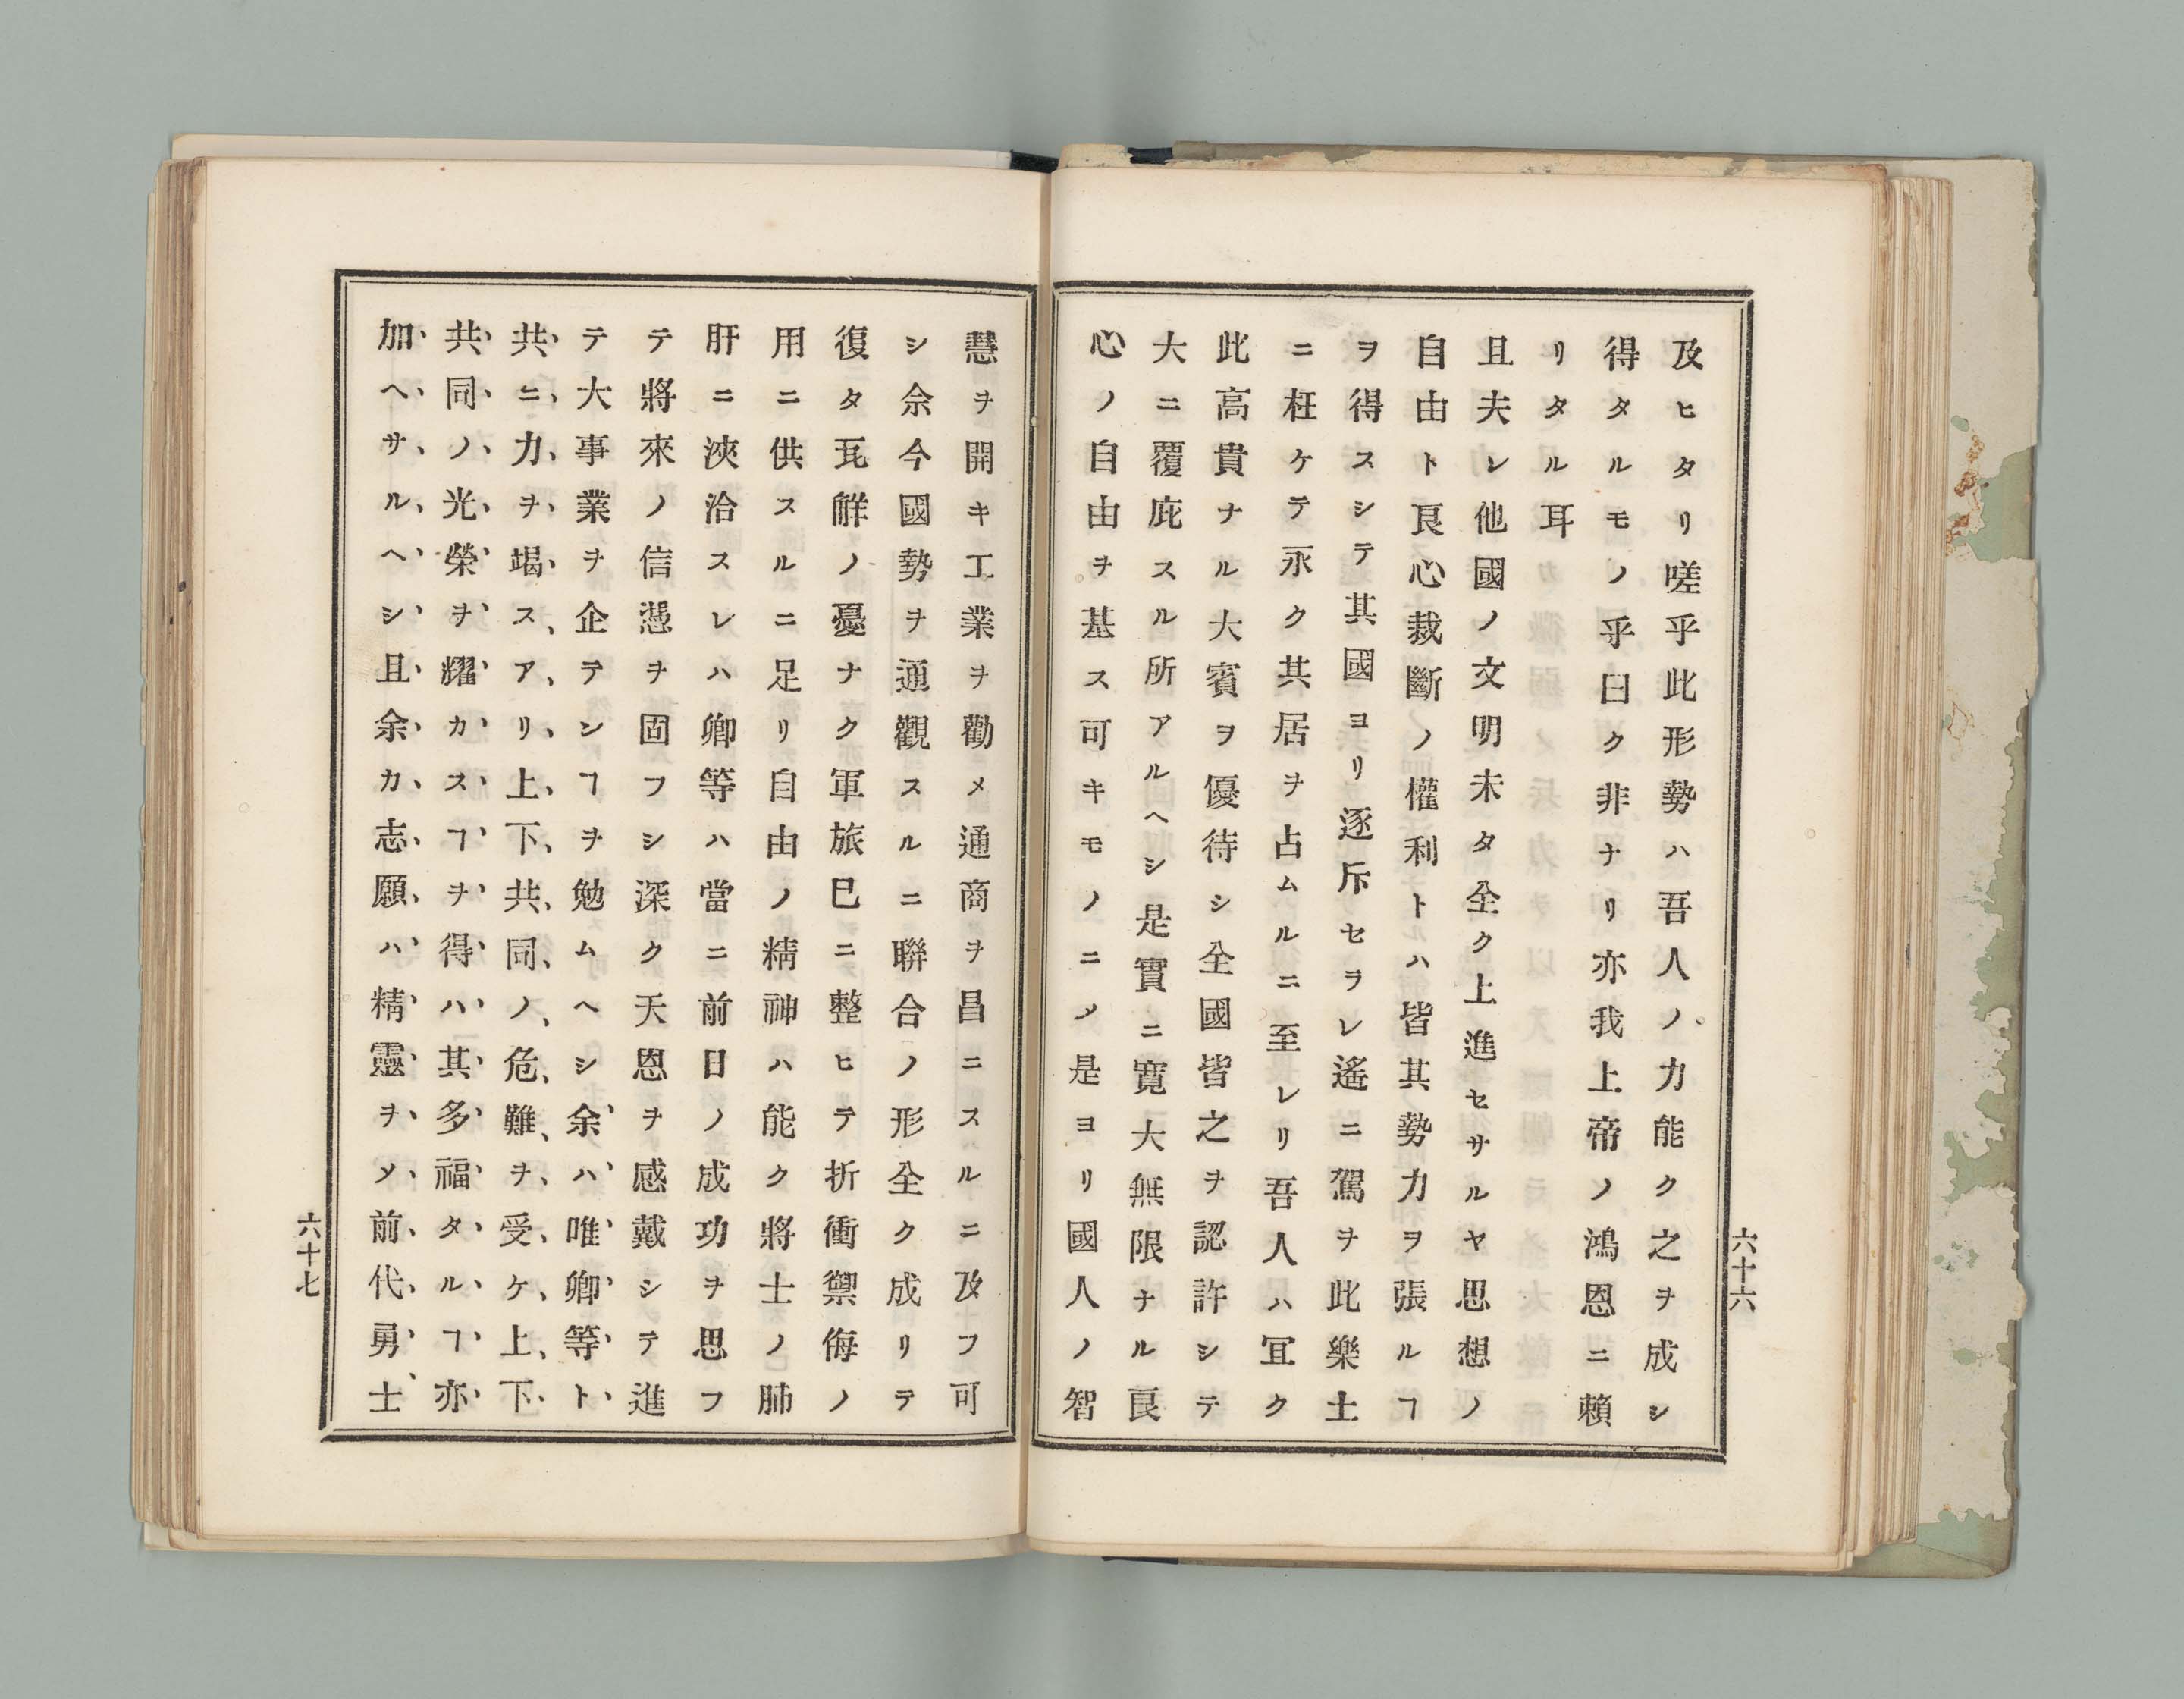 及ヒタリ嗟乎此形勢ハ吾人ノ力能ク之ヲ成シ
得タルモノ乎曰ク非ナリ亦我上帝ノ鴻恩ニ賴
リタル耳
且夫レ他國ノ文明未タ全ク上進セサルヤ思想ノ
自由ト良心裁斷ノ權利トハ皆其勢力ヲ張ルヿ
ヲ得スシテ其國ヨリ逐斥セラレ遙ニ駕ヲ此樂土
ニ枉ケテ永ク其居ヲ占ムルニ至レリ吾人ハ宜ク
此高貴ナル大賓ヲ優待シ全國皆之ヲ認許シテ
大ニ覆庇スル所アルヘシ是實ニ寛大無限ナル良
心ノ自由ヲ基ス可キモノニメ是ヨリ國人ノ智
六十六
慧ヲ開キ工業ヲ勸メ通商ヲ昌ニスルニ及フ可
シ余今國勢ヲ通觀スルニ聯合ノ形全ク成リテ
復タ瓦解ノ憂ナク軍旅已ニ整ヒテ折衝禦侮ノ
用ニ供スルニ足リ自由ノ精神ハ能ク將士ノ肺
肝ニ浹洽スレハ卿等ハ當ニ前日ノ成功ヲ思フ
テ將來ノ信憑ヲ固フシ深ク天恩ヲ感戴シテ進
テ大事業ヲ企テンヿヲ勉ムヘシ余ハ唯卿等ト
共ニ力ヲ竭スアリ上下共同ノ危難ヲ受ケ上下
共同ノ光榮ヲ耀カスヿヲ得ハ其多福タルヿ亦
加ヘサルヘシ且余カ志願ハ精靈ヲメ前代勇士
六十七